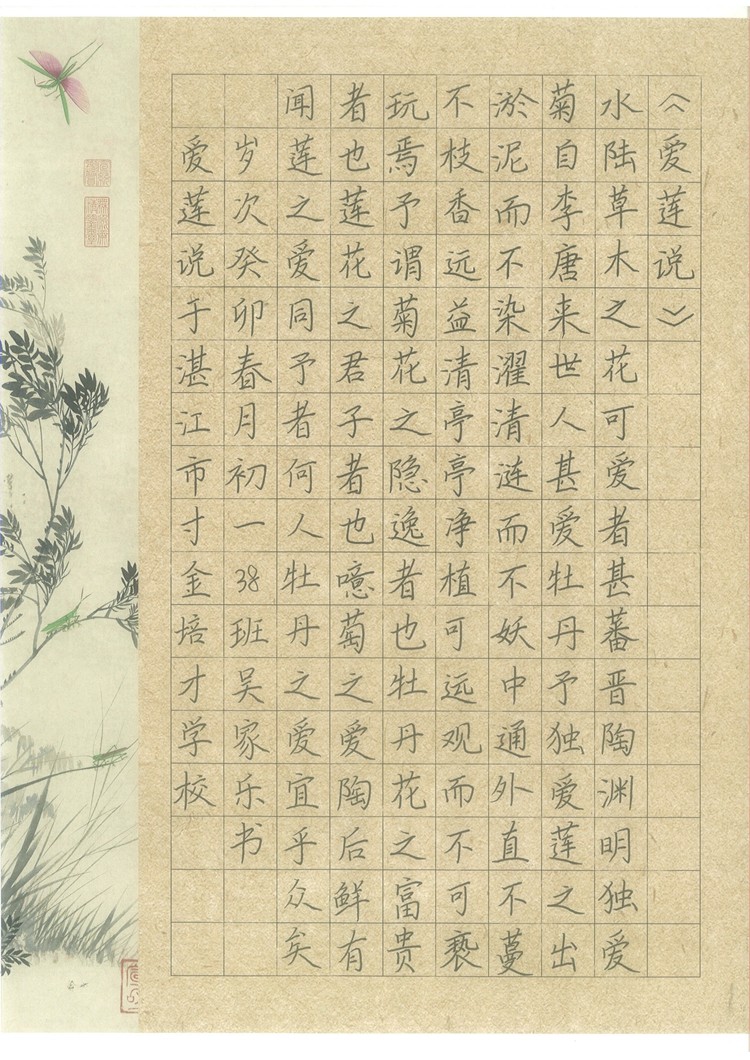 《爱莲说》
水陆草木之花可爱者甚蕃晋陶渊明独爱
菊自李唐来世人甚爱牡丹予独爱莲之出
淤泥而不染濯清涟而不妖中通外直不蔓
不枝香远益清亭亭净植可远观而不可亵
玩焉予谓菊花之隐逸者也牡丹花之富贵
者也莲花之君子者也噫萄之爱陶后鲜有
闻莲之爱同予者何人牡丹之爱宜乎众矣
岁次癸卯春月初一38班吴家乐书
爱莲说于湛江市寸金培才学校